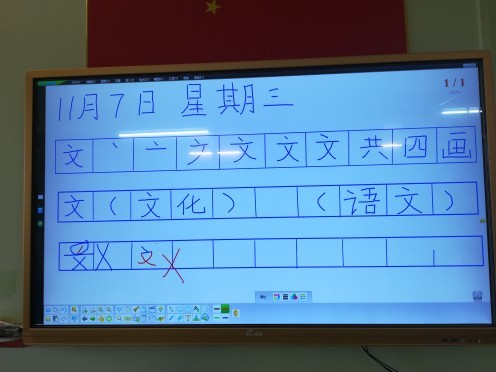 11月7日 星期三
1/1
文丶亠ナ文文文共四画
文(文化) (语文)
文